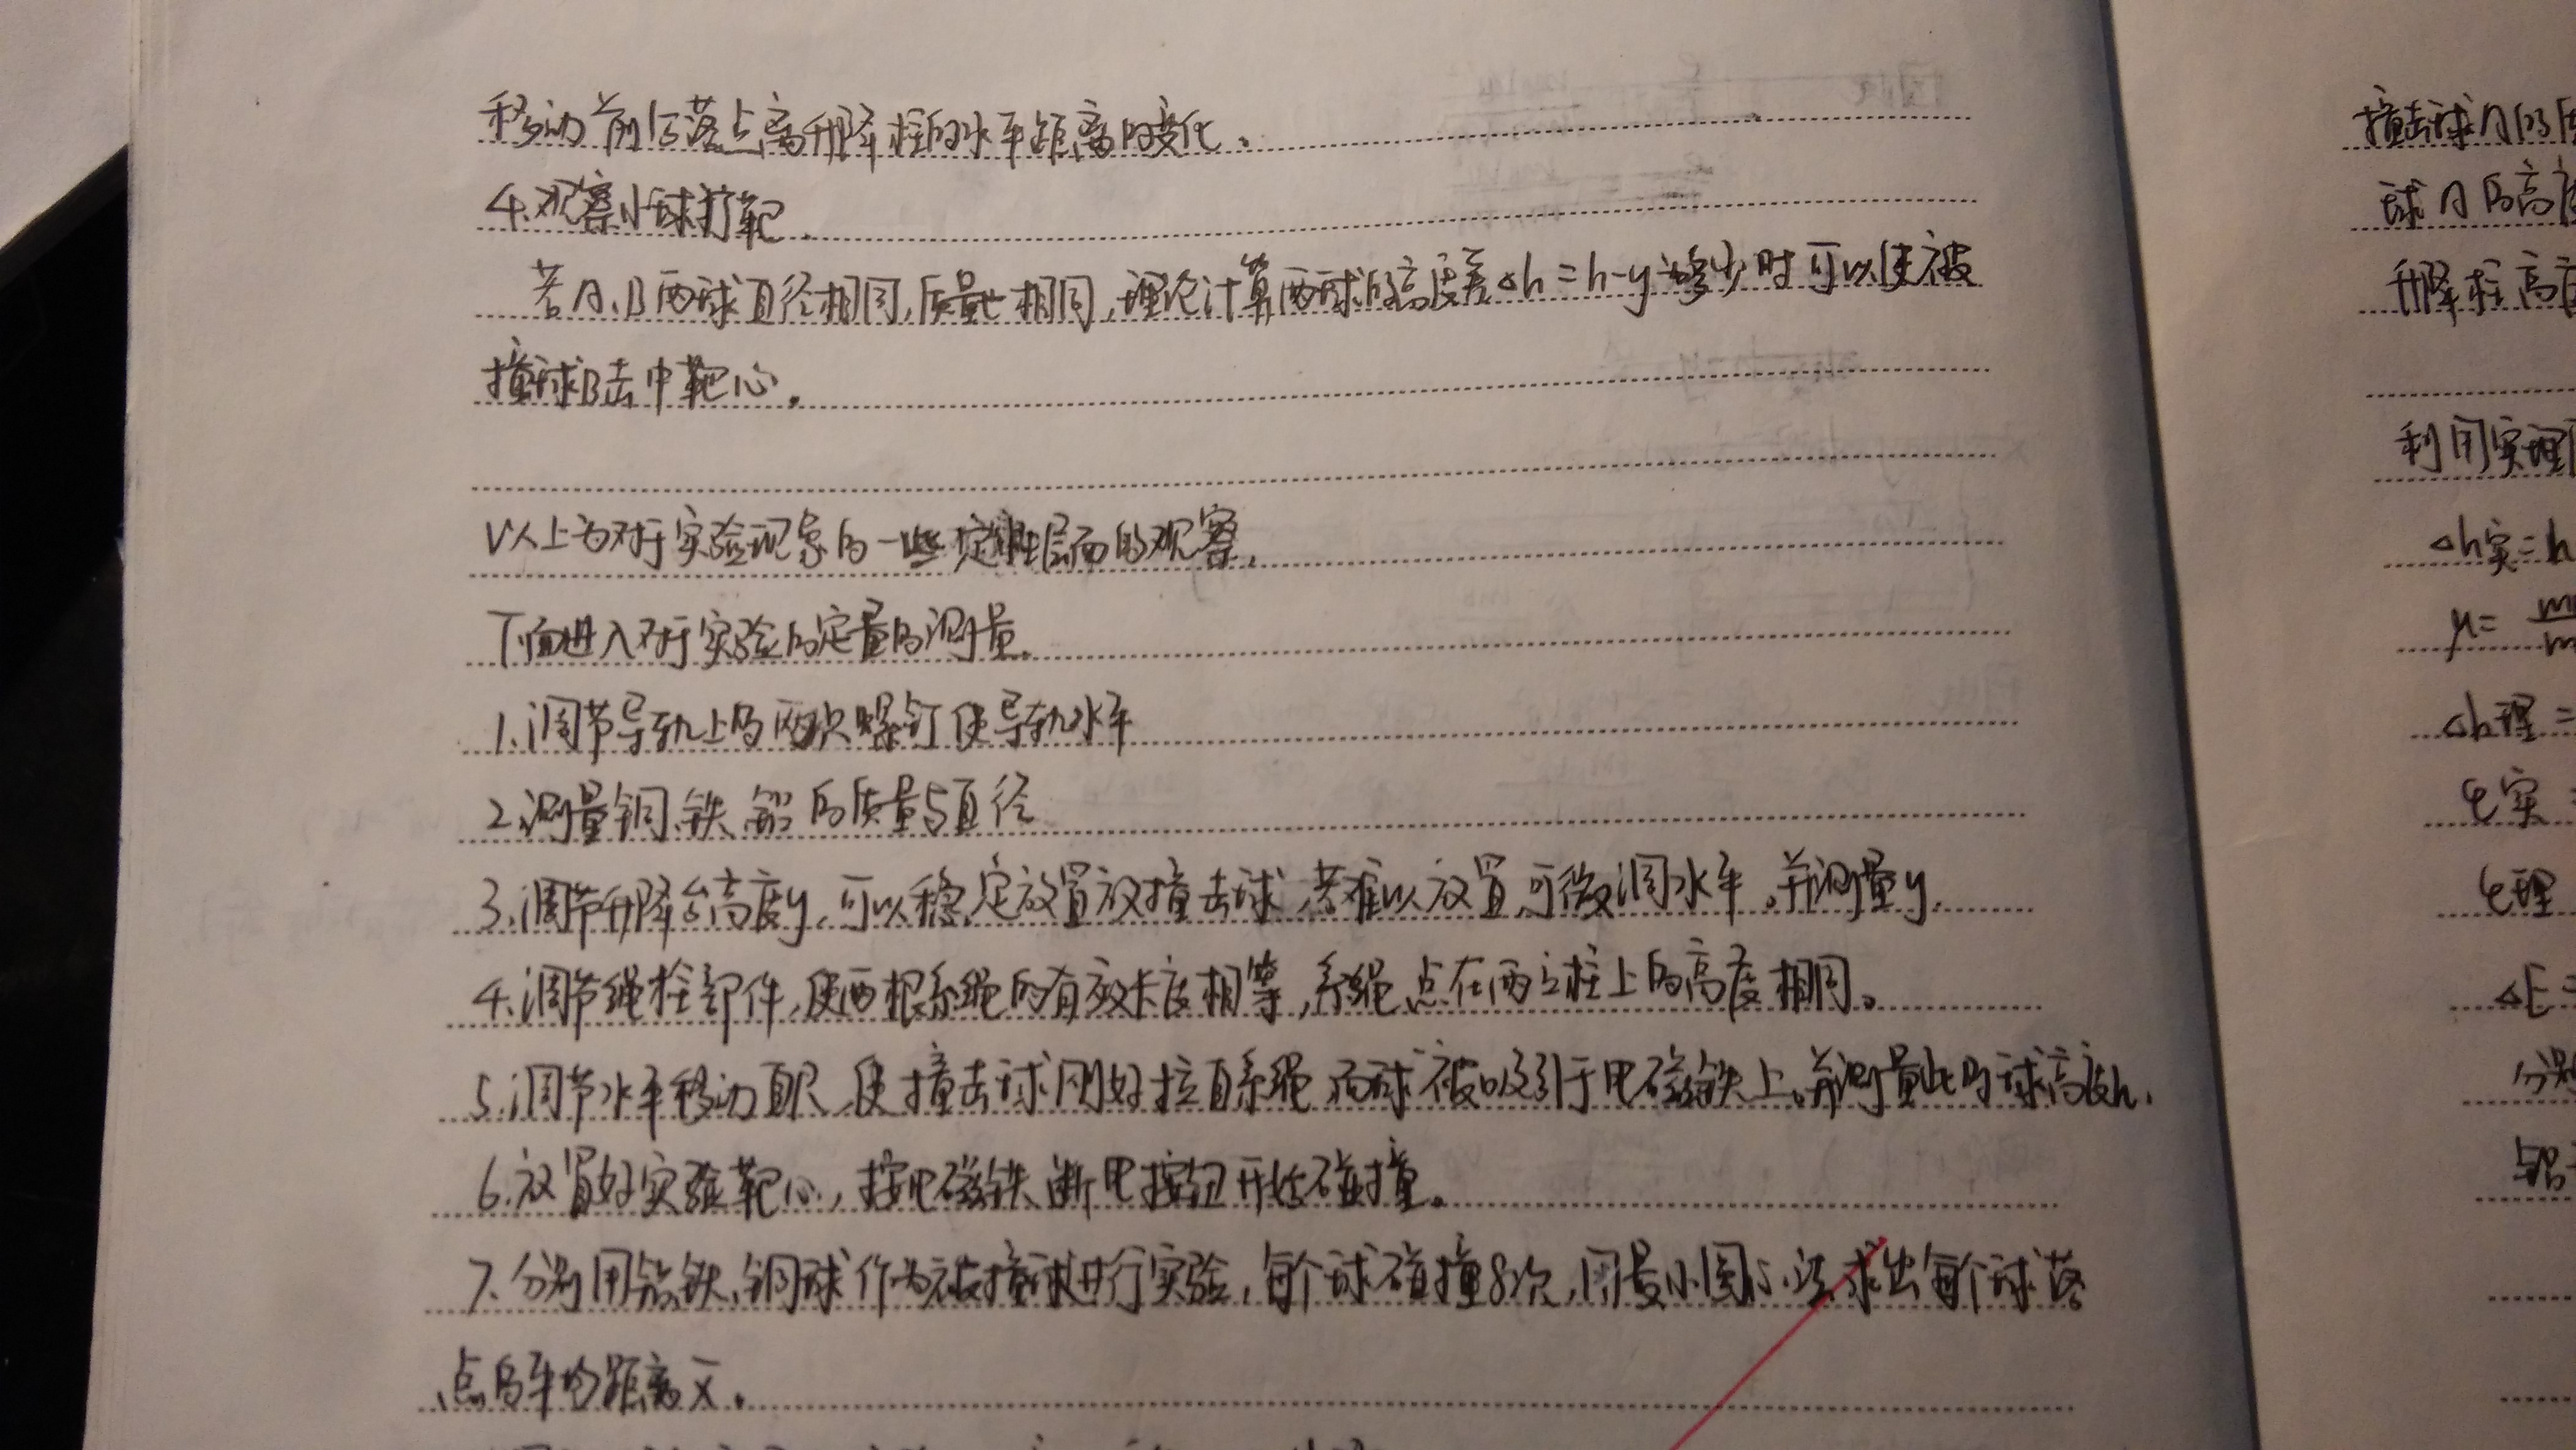 移动前后落点离升降柱的水平距离的变化。
4.观察小球打靶.
若A、B两球直径相同,质量也相同,理论计算两球的高度差△h=h-y为多少时可以使被
撞球B击中靶心。
以上为对于实验现象的一些定性层面的观察.
下面进入对于实验的定量的测量.
1.调节导轨上的两只螺钉使导轨水平
2.测量铜、铁、铝的质量与直径
3.调节升降台高度y,可以稳定放置被撞击球,若难以放置可微调水平,并测量y.
4.调节绳栓部件,使两根系绳的有效长度相等,系绳点在两立柱上的高度相同。
5.调节水平移动直尺,使撞击球刚好拉直系绳而球被吸引于电磁铁上,并测量此时球高度h.
6.放置好实验靶心,按电磁铁断电按钮开始碰撞。
7.分别用铝、铁、铜球作为被撞球进行实验,每个球碰撞8次,用最小圆心法求出每个球落
点的平均距离x̄。
撞击球A的
球A的高度
升降柱高度
利用实
△h实=h
μ=
△h理=
E实
E理
△E=
分别